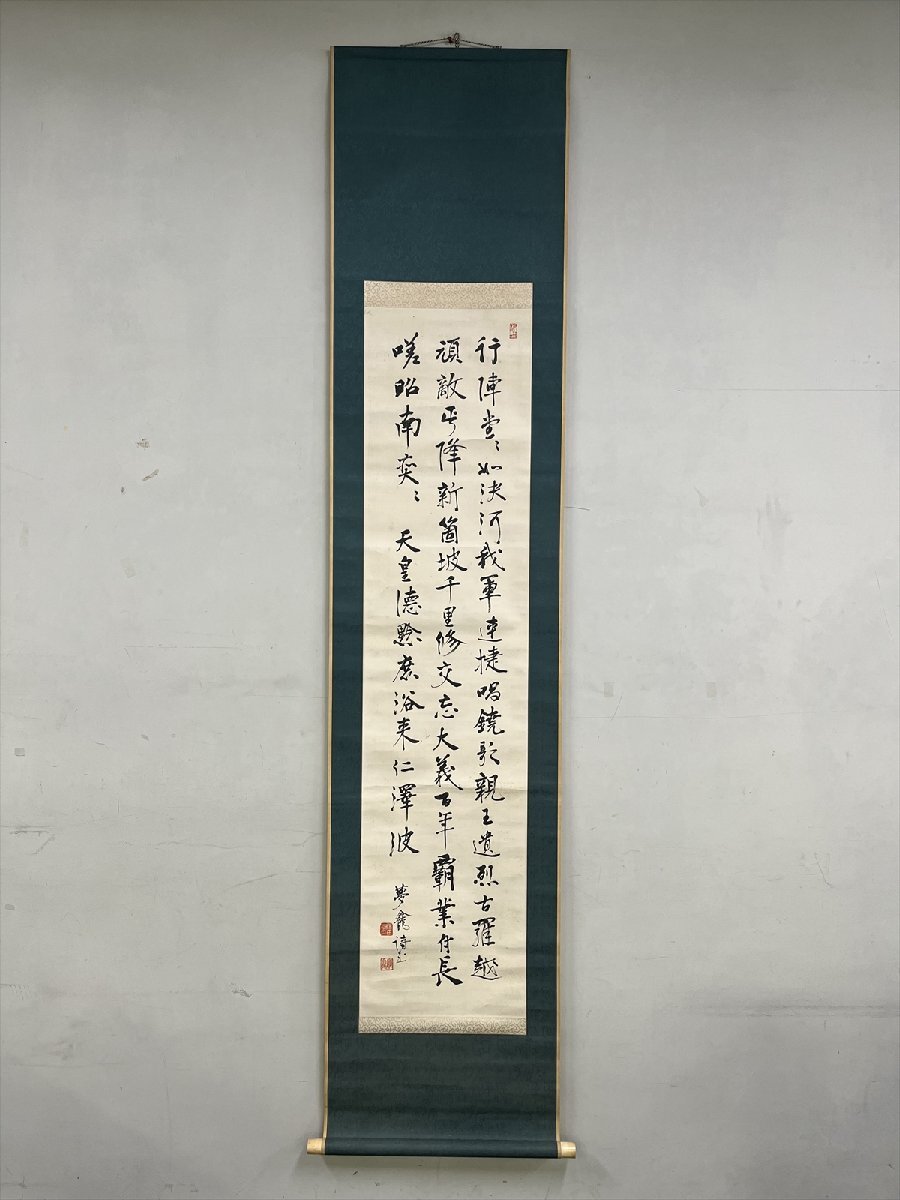 行陣堂〻如決河我軍連捷唱鐃歌親王遺烈古羅越
頑敵乞降新箇坡千里修交忘大義百年霸業付長
嗟昭南奕〻 天皇徳黔庶浴来仁澤波
夢龕